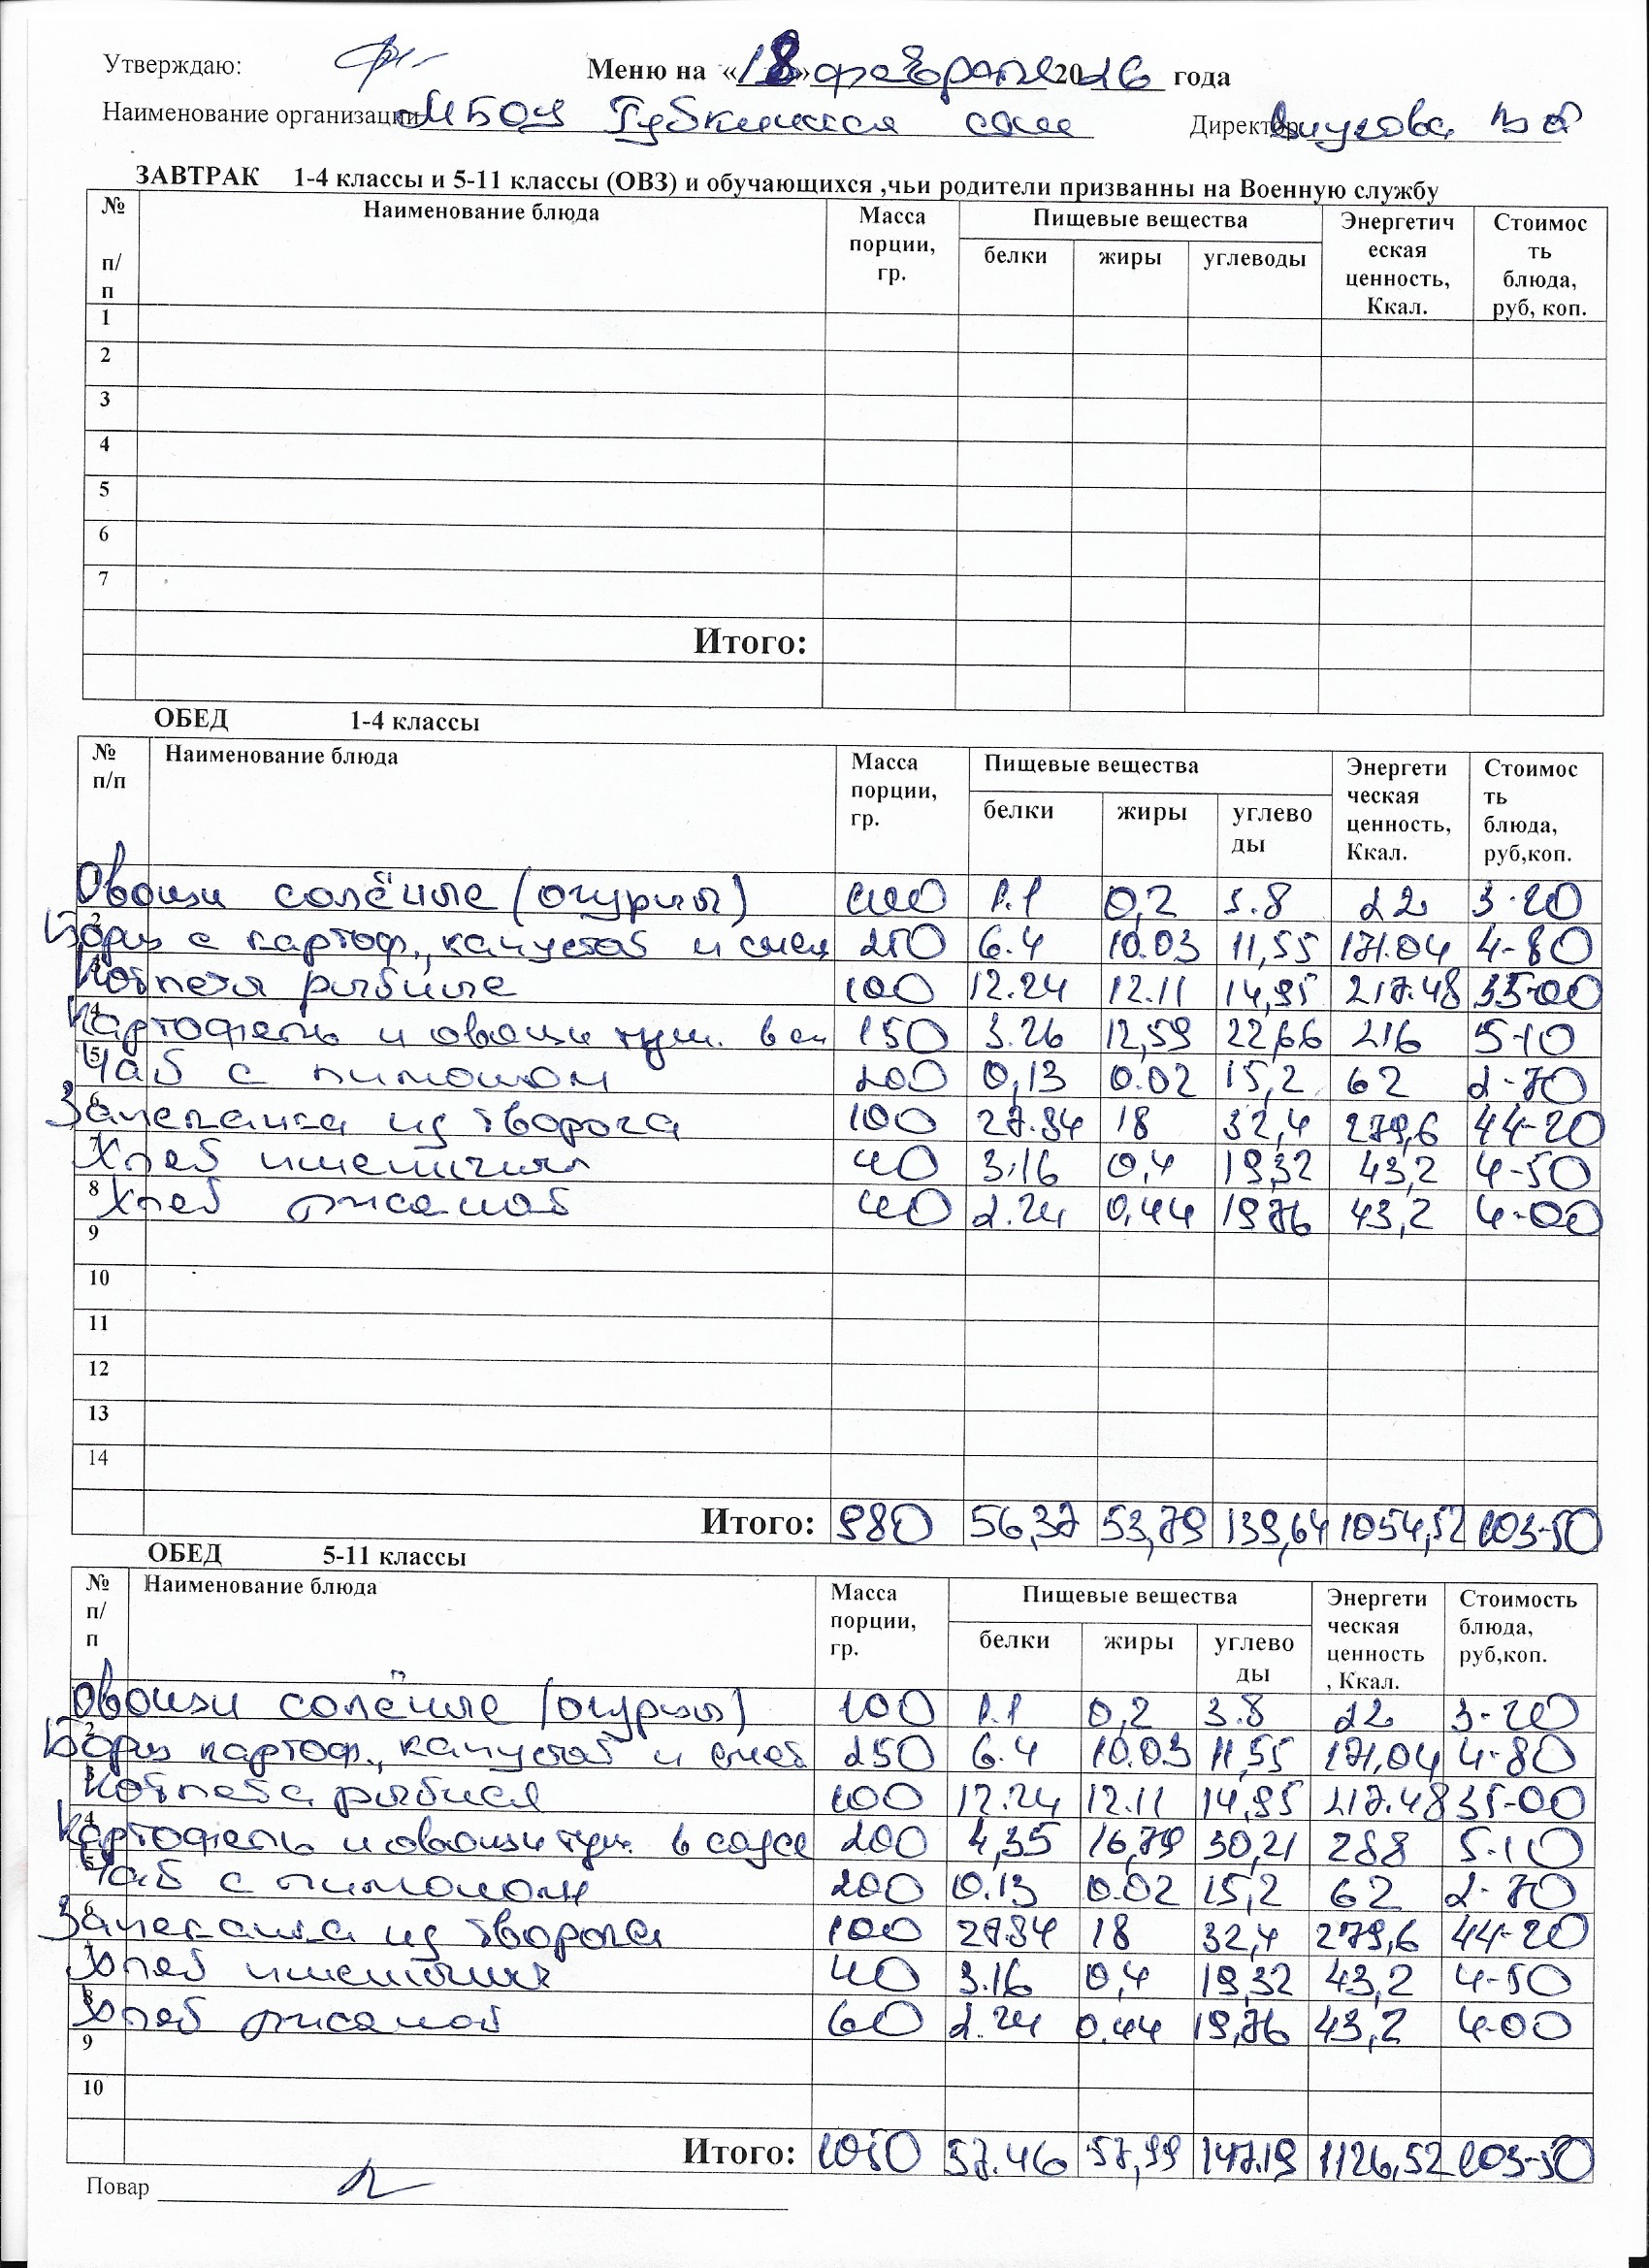 Утверждаю:
Меню на «18» февраля 2026 года
Наименование организации МБОУ Губкинская сош Директор
ЗАВТРАК 1-4 классы и 5-11 классы (ОВЗ) и обучающихся ,чьи родители призванны на Военную службу
№ п/п Наименование блюда Масса порции, гр. Пищевые вещества белки жиры углеводы Энергетическая ценность, Ккал. Стоимость блюда, руб, коп.
1
2
3
4
5
6
7
Итого:
ОБЕД 1-4 классы
№ п/п Наименование блюда Масса порции, гр. Пищевые вещества белки жиры углеводы Энергетическая ценность, Ккал. Стоимость блюда, руб,коп.
1 Овощи солёные (огурцы) 100 1.1 0,2 3.8 22 3-20
2 Борщ с картоф., капустой и смет 250 6.4 10.03 11,55 171.04 4-80
3 Котлета рыбные 100 12.24 12.11 14,95 217.48 35-00
4 Картофель и овощи туш. в со 150 3.26 12,59 22,66 216 5-10
5 Чай с лимоном 200 0,13 0.02 15,2 62 2-70
6 Запеканка из творога 100 27.84 18 32,4 279,6 44-20
7 Хлеб пшеничный 40 3.16 0,4 19,32 43,2 4-50
8 Хлеб ржаной 40 2.24 0,44 19,76 43,2 4-00
9
10
11
12
13
14
Итого: 980 56,37 53,79 139,64 1054,52 103-50
ОБЕД 5-11 классы
№ п/п Наименование блюда Масса порции, гр. Пищевые вещества белки жиры углеводы Энергетическая ценность, Ккал. Стоимость блюда, руб,коп.
1 Овощи солёные (огурцы) 100 1.1 0,2 3.8 22 3-20
2 Борщ картоф., капустой и смет 250 6.4 10.03 11,55 171,04 4-80
3 Котлета рыбная 100 12.24 12.11 14,95 217.48 35-00
4 Картофель и овощи туш. в соусе 200 4,35 16,79 30,21 288 5-10
5 Чай с лимоном 200 0.13 0.02 15,2 62 2-70
6 Запеканка из творога 100 27.84 18 32,4 279,6 44-20
7 Хлеб пшеничный 40 3.16 0,4 19,32 43,2 4-50
8 Хлеб ржаной 60 2.24 0.44 19,76 43,2 4-00
9
10
Итого: 1050 57.46 57,99 147.19 1126,52 103-50
Повар